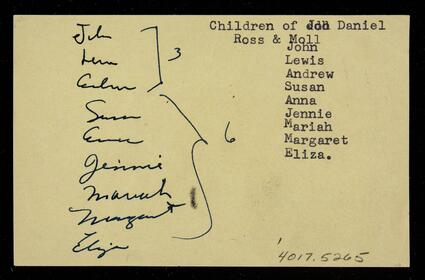 Children of Daniel
Ross & Moll
John
Lewis
Andrew
Susan
Anna
Jennie
Mariah
Margaret
Eliza.
John
3
Susan
6
Jennie
Mariah
Margaret
Eliza
4017.5265